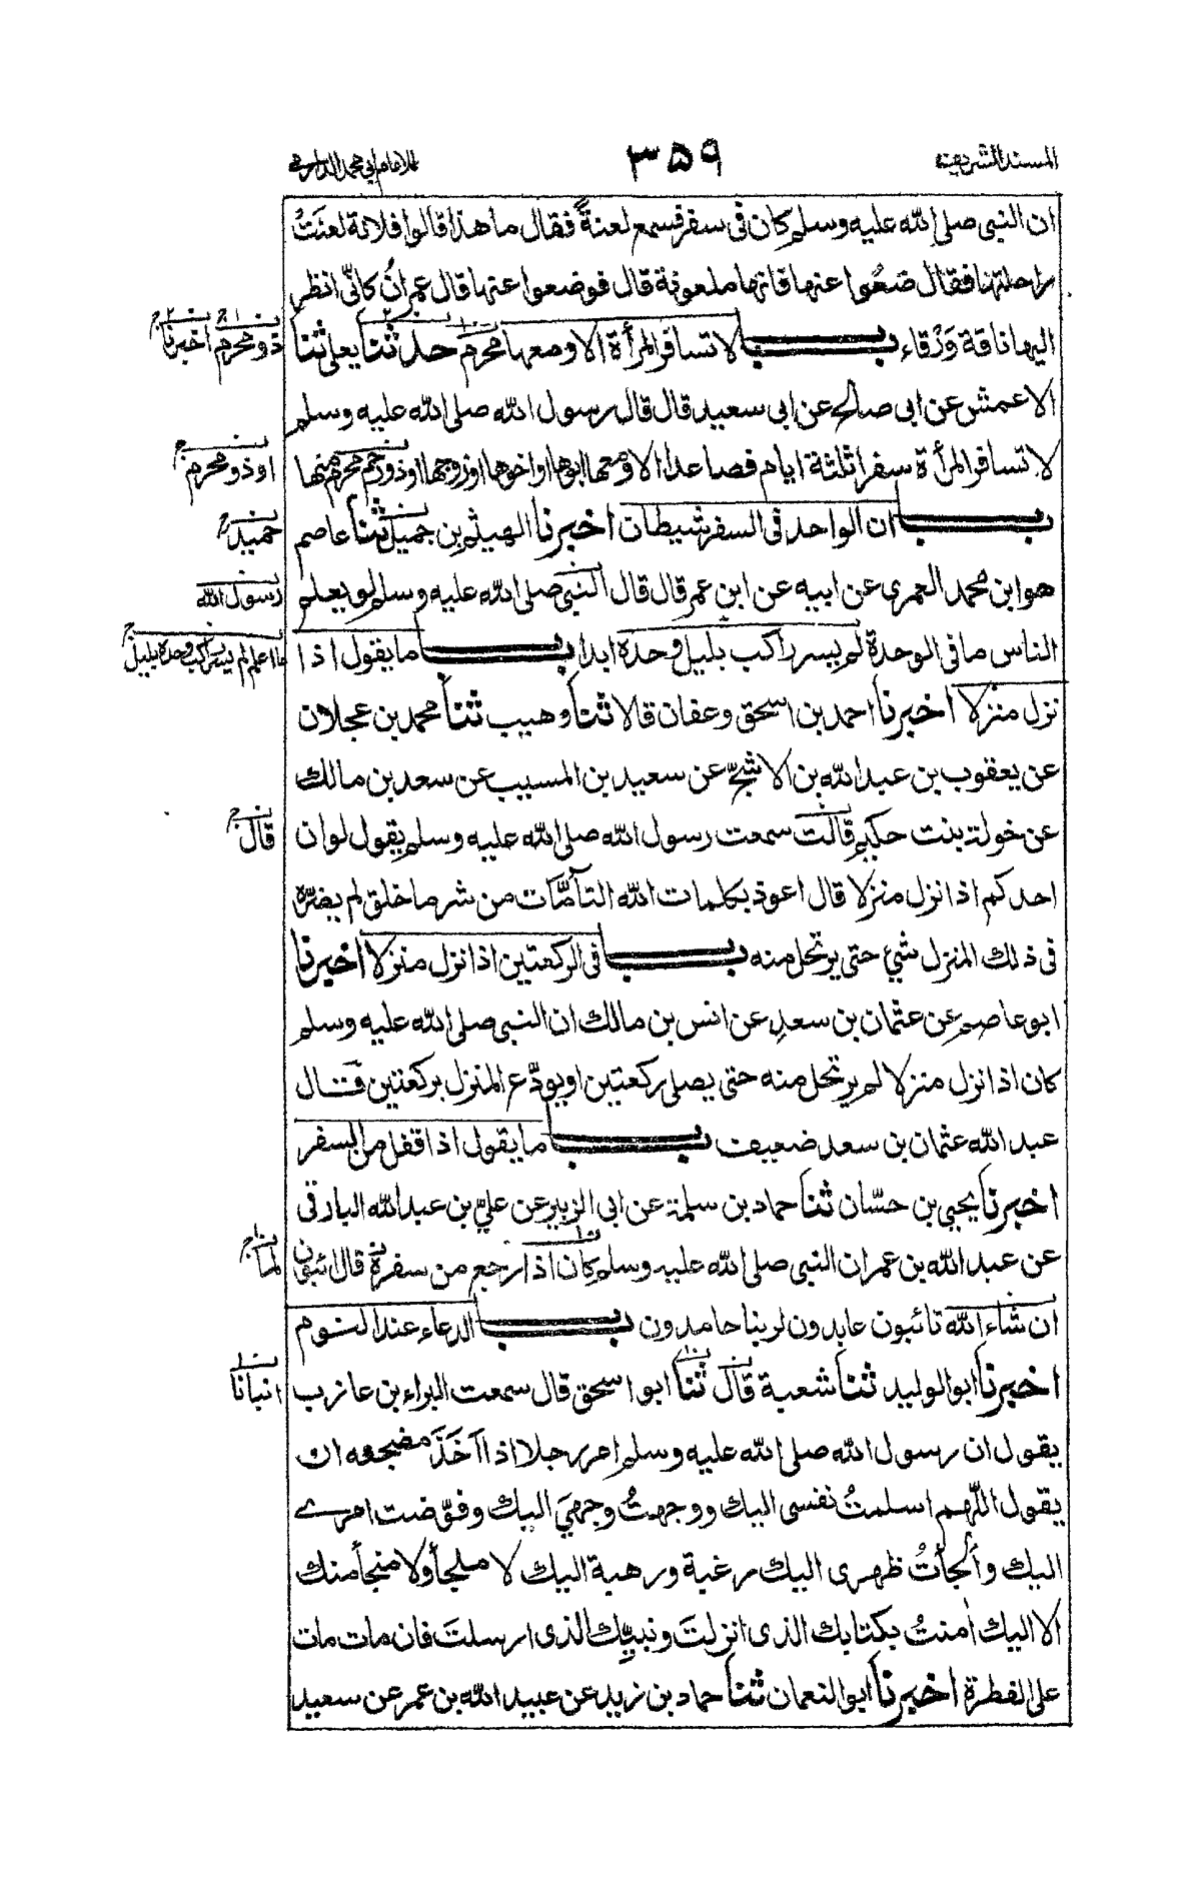 المسند الشريف ٣٥٩ للامام ابي محمد الدارمي
ان النبى صلى الله عليه وسلم كان فى سفر فسمع لعنةً فقال ما هذا قالوا فلانة لعنَتْ
راحلتها فقال ضعُوا عنها فانها ملعونة قال فوضعوا عنها قال عمرانُ كانّى انظر
اليها ناقة وَرْقاء باب لا تسافر المرأة الا ومعها محرم حدثنا يعلى ثنا
ذو محرم اخبرنا
الاعمش عن ابى صالح عن ابى سعيد قال قال رسول الله صلى الله عليه وسلم
لا تسافر المرأة سفرا ثلثة ايام فصاعدا الا ومعها ابوها او اخوها او زوجها او ذو رحم محرم منها
او ذو محرم
باب ان الواحد فى السفر شيطان اخبرنا الهيثم بن جميل ثنا عاصم
حميد
هو ابن محمد العمرى عن ابيه عن ابن عمر قال قال النبى صلى الله عليه وسلم لو يعلم
رسول الله
الناس ما فى الوحدة لم يسر راكب بليل وحدة ابدا باب ما يقول اذا
ما اعلم لم يسر راكب وحدة بليل
نزل منزلا اخبرنا احمد بن اسحق وعفان قالا ثنا وهيب ثنا محمد بن عجلان
عن يعقوب بن عبد الله بن الاشجّ عن سعيد بن المسيب عن سعد بن مالك
عن خولة بنت حكيم قالت سمعت رسول الله صلى الله عليه وسلم يقول لو ان
قال
احدكم اذا نزل منزلا قال اعوذ بكلمات الله التآمّات من شر ما خلق لم يضرّه
فى ذلك المنزل شئ حتى يرتحل منه باب فى الركعتين اذا نزل منزلا اخبرنا
ابو عاصم عن عثمان بن سعدٍ عن انس بن مالك ان النبى صلى الله عليه وسلم
كان اذا نزل منزلا لم يرتحل منه حتى يصلى ركعتين او يودّع المنزل بركعتين قال
عبد الله عثمان بن سعد ضعيف باب ما يقول اذا قفل من السفر
اخبرنا يحيى بن حسّان ثنا حماد بن سلمة عن ابى الزبير عن علىّ بن عبد الله البارقى
عن عبد الله بن عمر ان النبى صلى الله عليه وسلم كان اذا رجع من سفرة قال ائبون
لما
ان شاء الله تائبون عابدون لربنا حامدون باب الدعاء عند النوم
اخبرنا ابو الوليد ثنا شعبة قال ثنا ابو اسحق قال سمعت البراء بن عازب
انبانا
يقول ان رسول الله صلى الله عليه وسلم امر رجلا اذا آخَذَ مضجعه ان
يقول اللّهم اسلمتُ نفسى اليك ووجهتُ وجهىَ اليك وفوّضت امرى
اليك وألجأتُ ظهرى اليك رغبة ورهبة اليك لا ملجأ ولا منجأ منك
الا اليك اٰمنتُ بكتابك الذى انزلتَ ونبيّك الذى ارسلتَ فان مات مات
على الفطرة اخبرنا ابو النعمان ثنا حماد بن زيد عن عبيد الله بن عمر عن سعيد